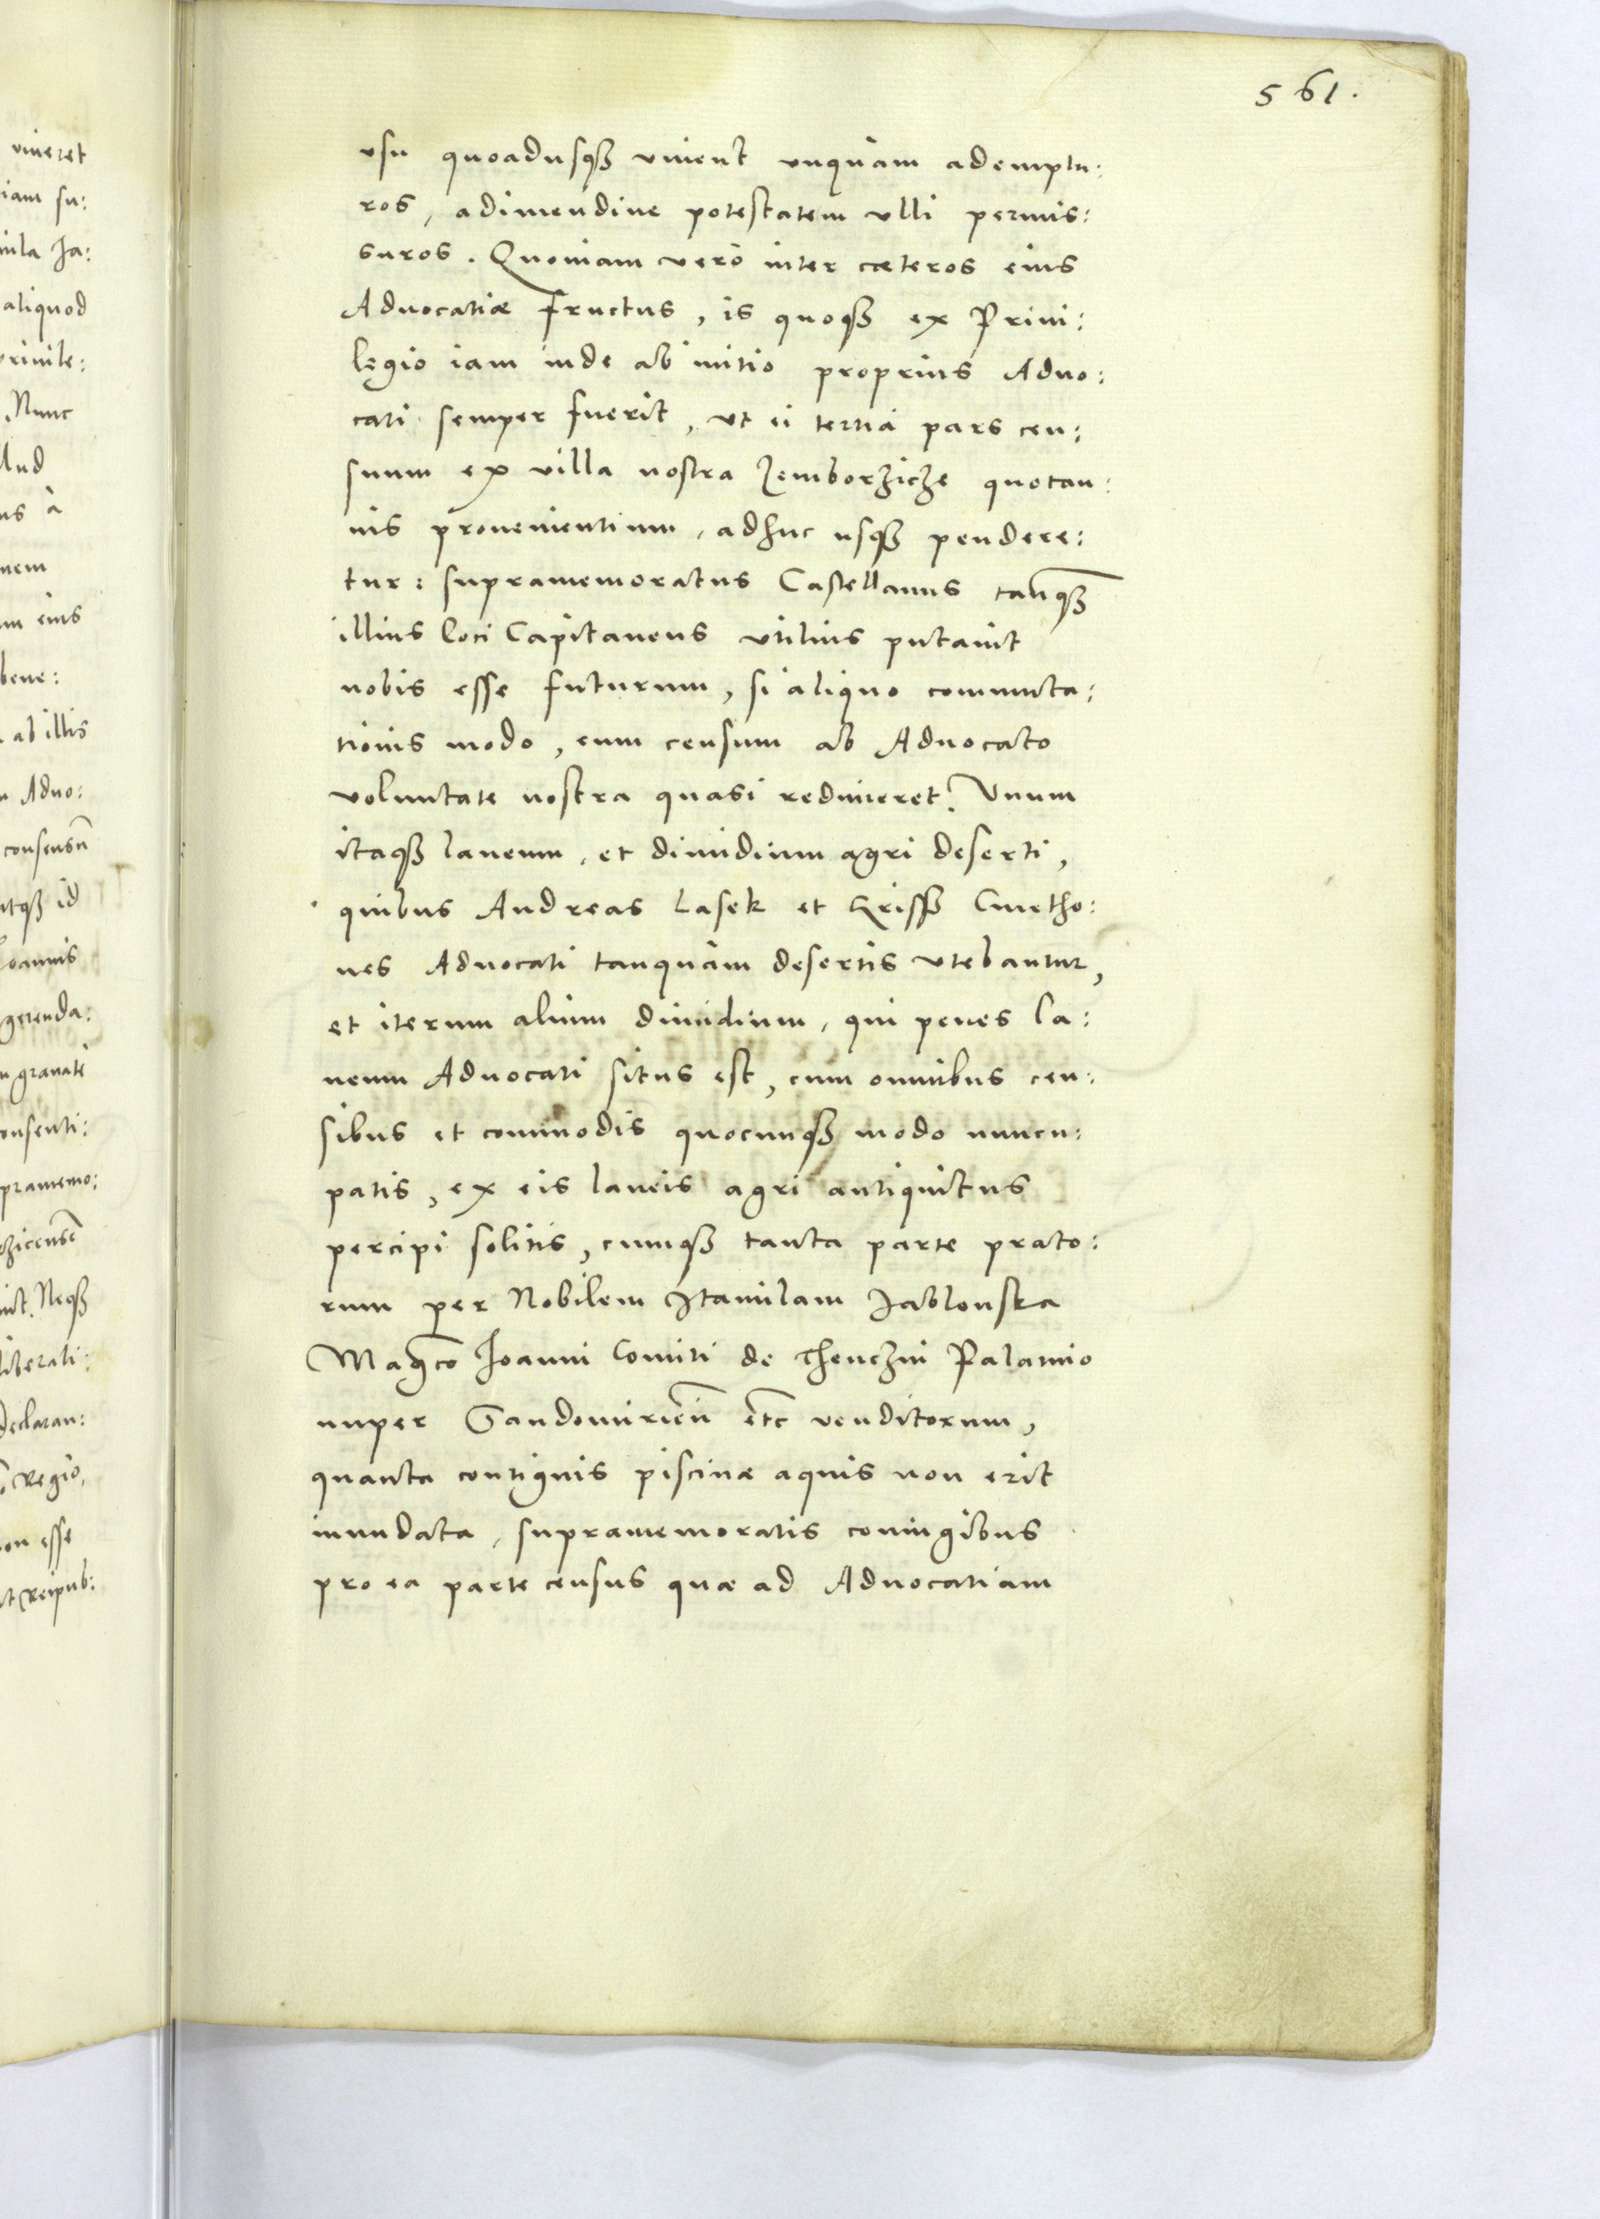 561.
vsu quoadusqȝ viuent vnquàm ademptu:
ros, adimendiue potestatem vlli permis:
suros. Quoniam verò inter cæteros eius
Aduocatiæ fructus, is quoqȝ ex Priui:
legio iam inde ab initio proprius Aduo:
cati semper fuerit, ut ei tertia pars cen:
suum ex villa nostra Zemborzicze quotan:
nis prouenientium, adhuc usqȝ pendere:
tur: supramemoratus Castellanus tanqȝ
illius loci Capitaneus vtilius putauit
nobis esse futurum, si aliquo commuta:
tionis modo, eum censum ab Aduocato
voluntate nostra quasi redimeret. Vnum
itaqȝ laneum, et dimidium agri deserti,
quibus Andreas Lasek et Griss Cmetho:
nes Aduocati tanquàm desertis vtebantur,
et iterum alium dimidium, qui penes la:
neum Aduocati situs est, cum omnibus cen:
sibus et commodis quocunqȝ modo nuncu:
patis, ex eis laneis agri antiquitus
percipi solitis, cumqȝ tanta parte prato:
rum per Nobilem Itamilam Jablonska
Magco Joanni Comiti de Thenczin Palatino
nuper Sandomirien̄ etc venditorum,
quanta contiguis piscinæ aquis non erit
inundata, supramemoratis coniugibus
pro ea parte census quæ ad Aduocatiam
viueret
iam su:
aliquod
Nunc
eius
bene:
ab illis
Aduo:
id
gerenda:
Neqȝ
Regio,
esse
Reipub: